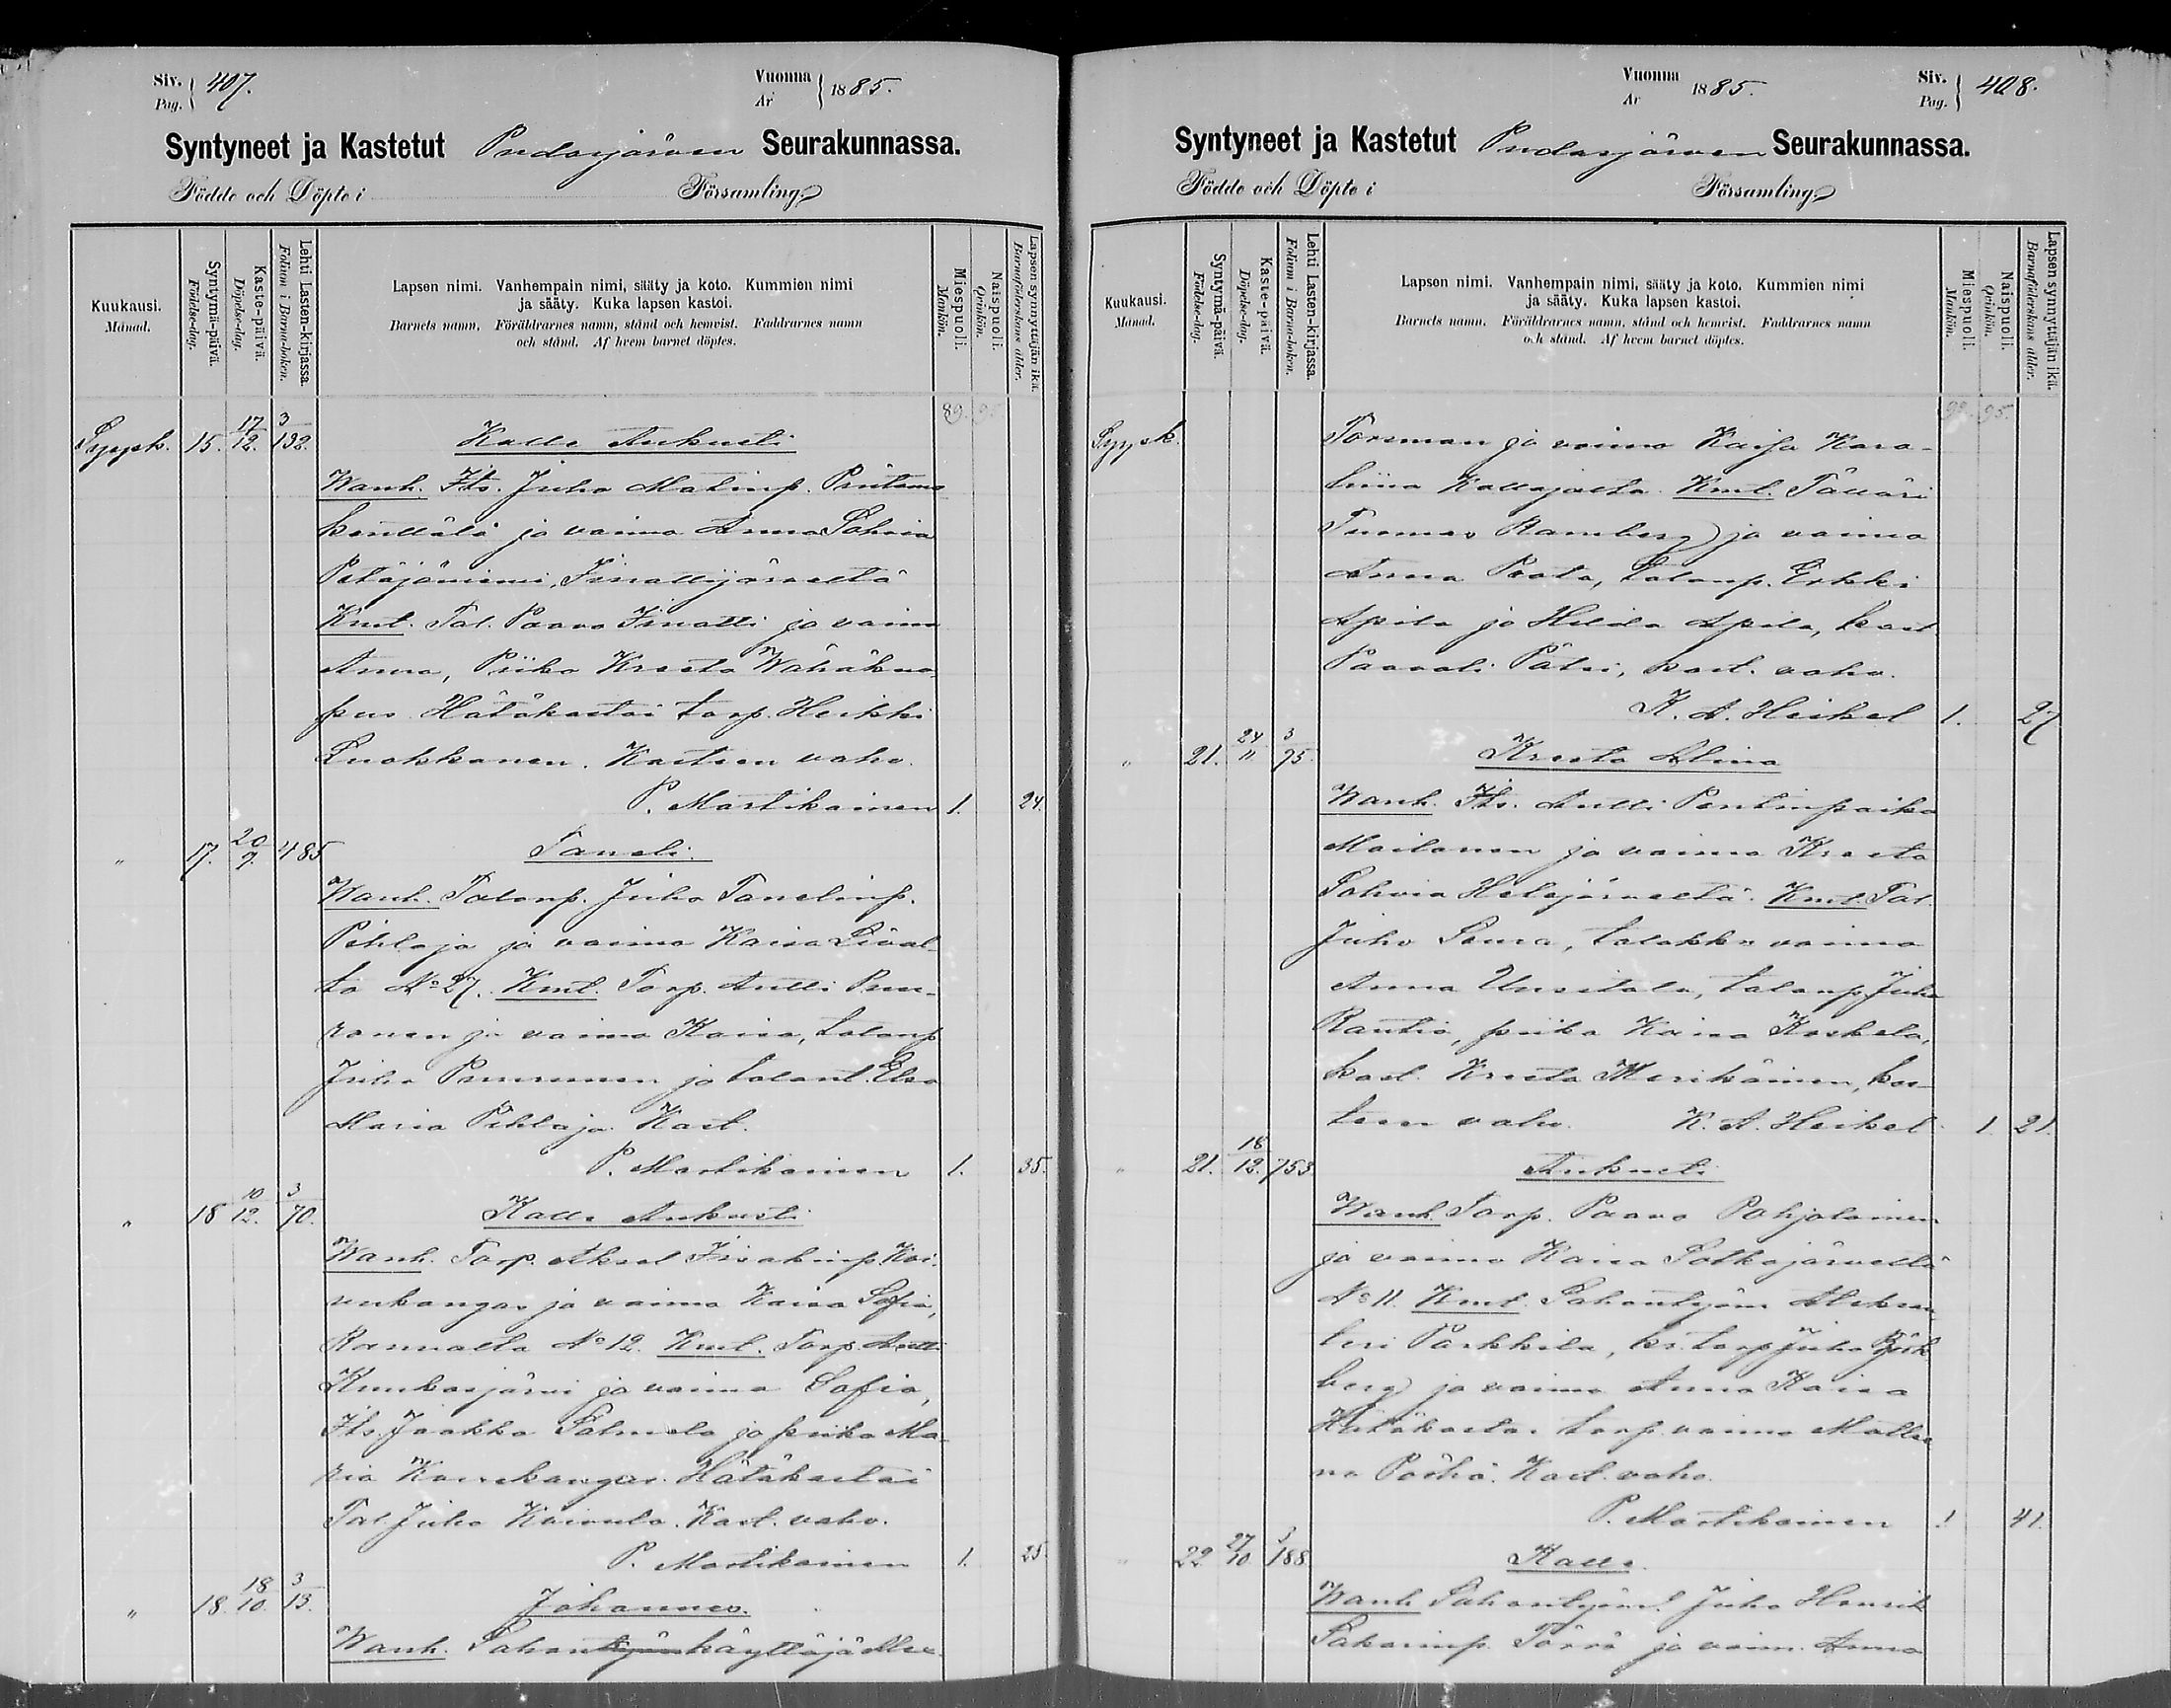 Siv. 407. Vuonna 1885.
Pag. Ar
Syntyneet ja Kastetut Pudasjärven Seurakunnassa.
Födde och Döpte i Församling
Kuukausi.
Månad.
Syntymä-päivä.
Födelse-dag.
Kaste-päivä.
Döpelse-dag.
Lehti Lasten-kirjassa.
Folium i Barna-boken.
Lapsen nimi. Vanhempain nimi, sääty ja koto. Kummien nimi
ja sääty. Kuka lapsen kastoi.
Barnets namn. Föräldrarnes namn, stånd och hemvist. Faddrarnes namn
och stånd. Af hvem barnet döptes.
Miespuoli.
Mankön.
Naispuoli.
Qvinkön.
Lapsen synnyttäjän ikä.
Barnaföderskans ålder.
89. 95.
Syysk. 15. 17/12. 3/132. Kalle Aukusti
Wanh. Its. Juho Matinp.
ja vaimo Anna Sohvia
Petäjäniemi,
Kmt. Tal. Paavo ja vaimo
Anna, Piika Kreeta
Hätäkastoi torp. Heikki
Luokkanen. Kasteen vahv.
P. Martikainen 1. 24.
" 17. 20/9. 485 Taneli.
Wanh. Talonp. Juho Tanelinp.
Pihlaja ja vaimo Kaisa
No 27. Kmt. Torp. Antti Puu-
ronen ja vaimo Kaisa, talonp
Juho Puurunen ja talont. Elsa
Maria Pihlaja. Kast.
P. Martikainen 1. 35.
" 18 10/12. 3/70. Kalle Aukusti
Wanh. Torp. Aksel Iisakinp. Koi-
vukangas ja vaimo Kaisa Sofia,
No 12. Kmt. Torp. Antti
ja vaimo Sofia,
Its. Jaakko Salmela ja piika Ma-
ria Hätäkastoi
Tal. Juho Kast. vahv.
P. Martikainen 1. 25.
" 18. 18/10. 3/13. Johannes.
Wanh. Sahankäyttäjä
Vuonna 1885. Siv. 408.
Ar Pag.
Syntyneet ja Kastetut Pudasjärven Seurakunnassa.
Födde och Döpte i Församling
Kuukausi.
Månad.
Syntymä-päivä.
Födelse-dag.
Kaste-päivä.
Döpelse-dag.
Lehti Lasten-kirjassa.
Folium i Barna-boken.
Lapsen nimi. Vanhempain nimi, sääty ja koto. Kummien nimi
ja sääty. Kuka lapsen kastoi.
Barnets namn. Föräldrarnes namn, stånd och hemvist. Faddrarnes namn
och stånd. Af hvem barnet döptes.
Miespuoli.
Mankön.
Naispuoli.
Qvinkön.
Lapsen synnyttäjän ikä.
Barnaföderskans ålder.
95.
Syysk. Torsman ja vaimo Kaisa Karo-
liina Kollajalta. Kmt.
Tuomas Ramberg ja vaimo
Anna talonp. Erkki
Apila ja Hilda Apila, kast.
Paavali Pätsi, kast. vahv.
K. A. Heikel 1. 27
" 21. 24/11 3/75. Kreeta Alina
Wanh. Its. Antti Pentinpoika
Moilanen ja vaimo Kreeta
Sohvia Hetejärveltä. Kmt. Tal.
Juho vaimo
Anna Uusitalo, talonp. Juho
Rautio, piika Kaisa Koskela,
kast. Kreeta kas-
teen vahv. K. A. Heikel 1. 21.
" 21. 18/12. 753 Aukusti
Wanh. Torp. Paavo Pohjolainen
ja vaimo Kaisa Sotkajärveltä
No 11. Kmt. Aleksan-
teri Parkkila, torp Juho Björk
berg ja vaimo Anna Kaisa
Hätäkastoi torp. vaimo
Kast. vahv.
P. Martikainen 1 41.
" 22 27/10 3/188 Kalle.
Wanh. Juho Henrik
Sakarinp. Törrö ja vaim. Anna